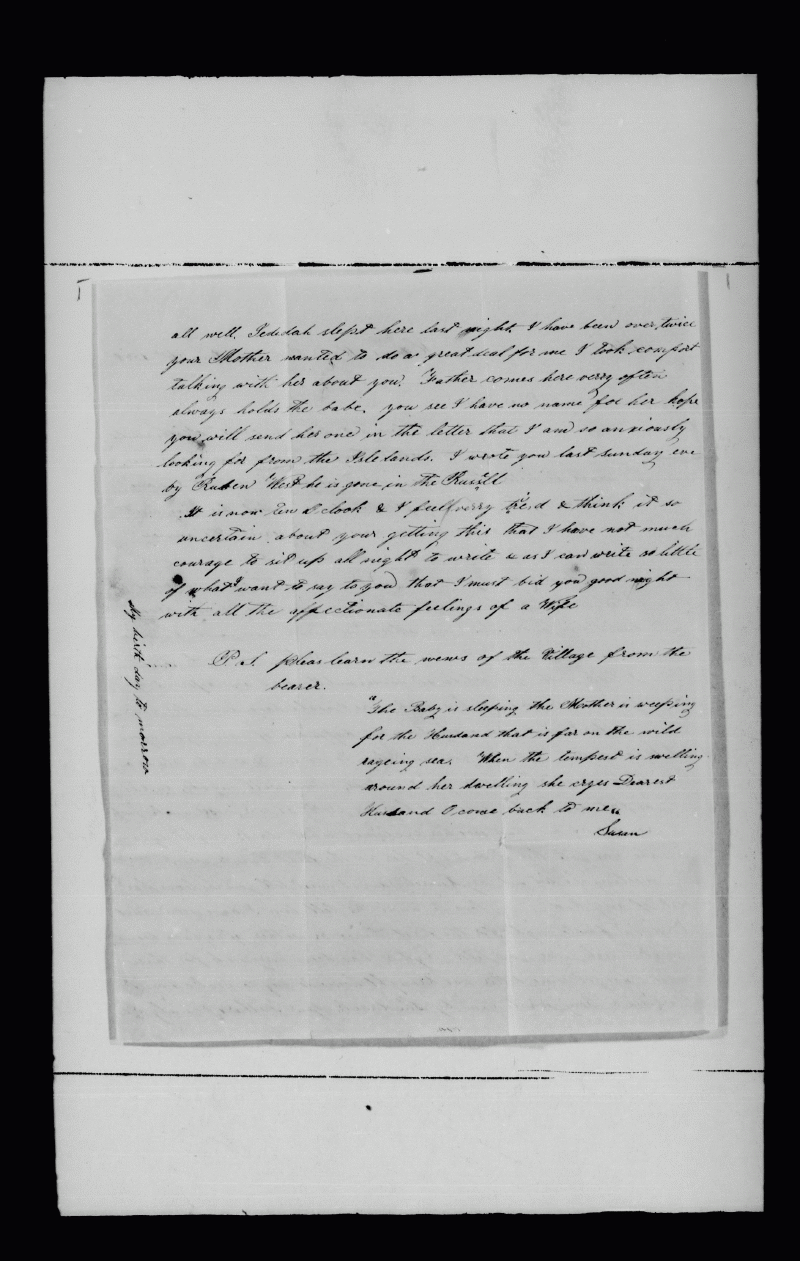 all well. Jededah slept here last night. I have been over twice
your Mother wanted to do a great deal for me I took comfort
talking with her about you. Father comes here verry often
always holds the babe. you see I have no name for her hope
you will send her one in the letter that I am so anxiously
looking for from the Islelands. I wrote you last sunday eve
by Ruben West he is gone in the Rusell
It is now ten O clock & I feel verry tierd & think it so
uncertain about your getting this that I have not much
courage to sit up all night to write & as I can write so little
of what I want to say to you that I must bid you good night
with all the affectionate feelings of a Wife
P.S. pleas learn the news of the Village from the
bearer.
"The Baby is sleeping the Mother is weeping
for the Husband that is far on the wild
rageing sea. When the tempest is swelling
around her dwelling she cryes Dearest
Husband O come back to me"
Susan
My birth day to morrow